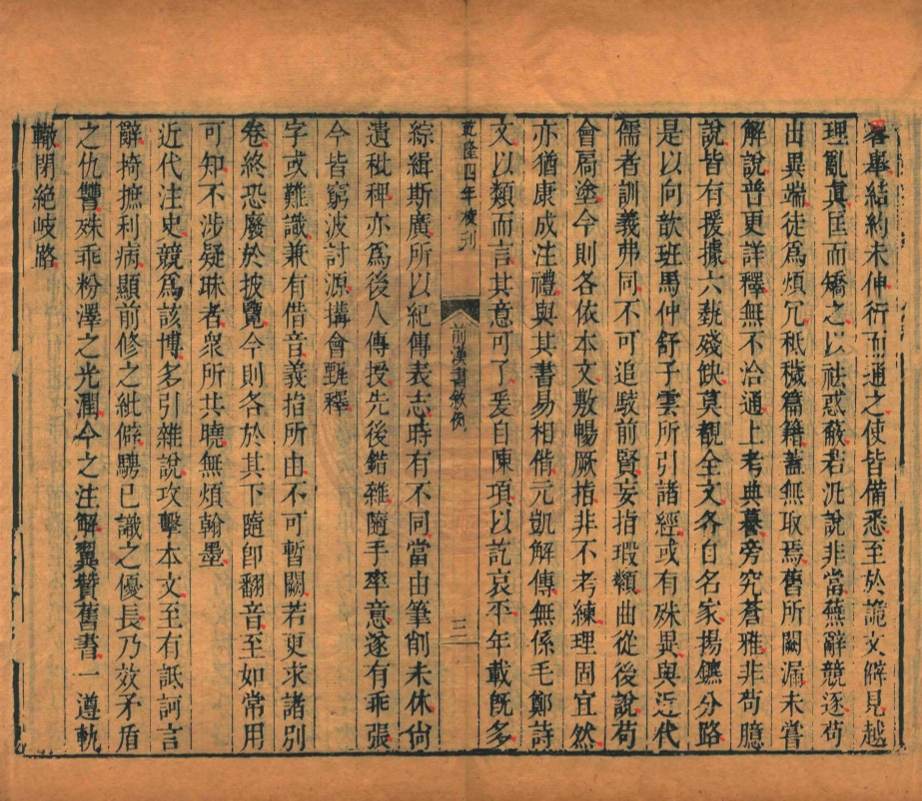 畧舉結約未伸衍而通之使皆備悉至於詭文僻見越
理亂真匡而矯之以祛惑蔽若汎說非當蕪辭競逐苟
出異端徒爲煩冗秪穢篇籍蓋無取焉舊所闕漏未嘗
解說普更詳釋無不洽通上考典謩旁究蒼雅非苟臆
說皆有援據六藝殘缺莫覩全文各自名家揚鑣分路
是以向歆班馬仲舒子雲所引諸經或有殊異與近代
儒者訓義弗同不可追駮前賢妄指瑕纇曲從後說苟
會扃塗今則各依本文敷暢厥指非不考練理固宜然
亦猶康成注禮與其書易相偝元凱解傳無係毛鄭詩
文以類而言其意可了爰自陳項以訖哀平年載旣多
乾隆四年校刊
前漢書敘例
三
綜緝斯廣所以紀傳表志時有不同當由筆削未休尙
遺秕稗亦爲後人傳授先後錯雜隨手率意遂有乖張
今皆窮波討源搆會甄釋
字或難識兼有借音義指所由不可暫闕若更求諸別
卷終恐廢於披覽今則各於其下隨卽翻音至如常用
可知不涉疑昧者衆所共曉無煩翰墨
近代注史競爲該博多引雜說攻擊本文至有詆訶言
辭掎摭利病顯前修之紕僻騁已識之優長乃效矛盾
之仇讐殊乖粉澤之光潤今之注解翼贊舊書一遵軌
轍閉絶岐路